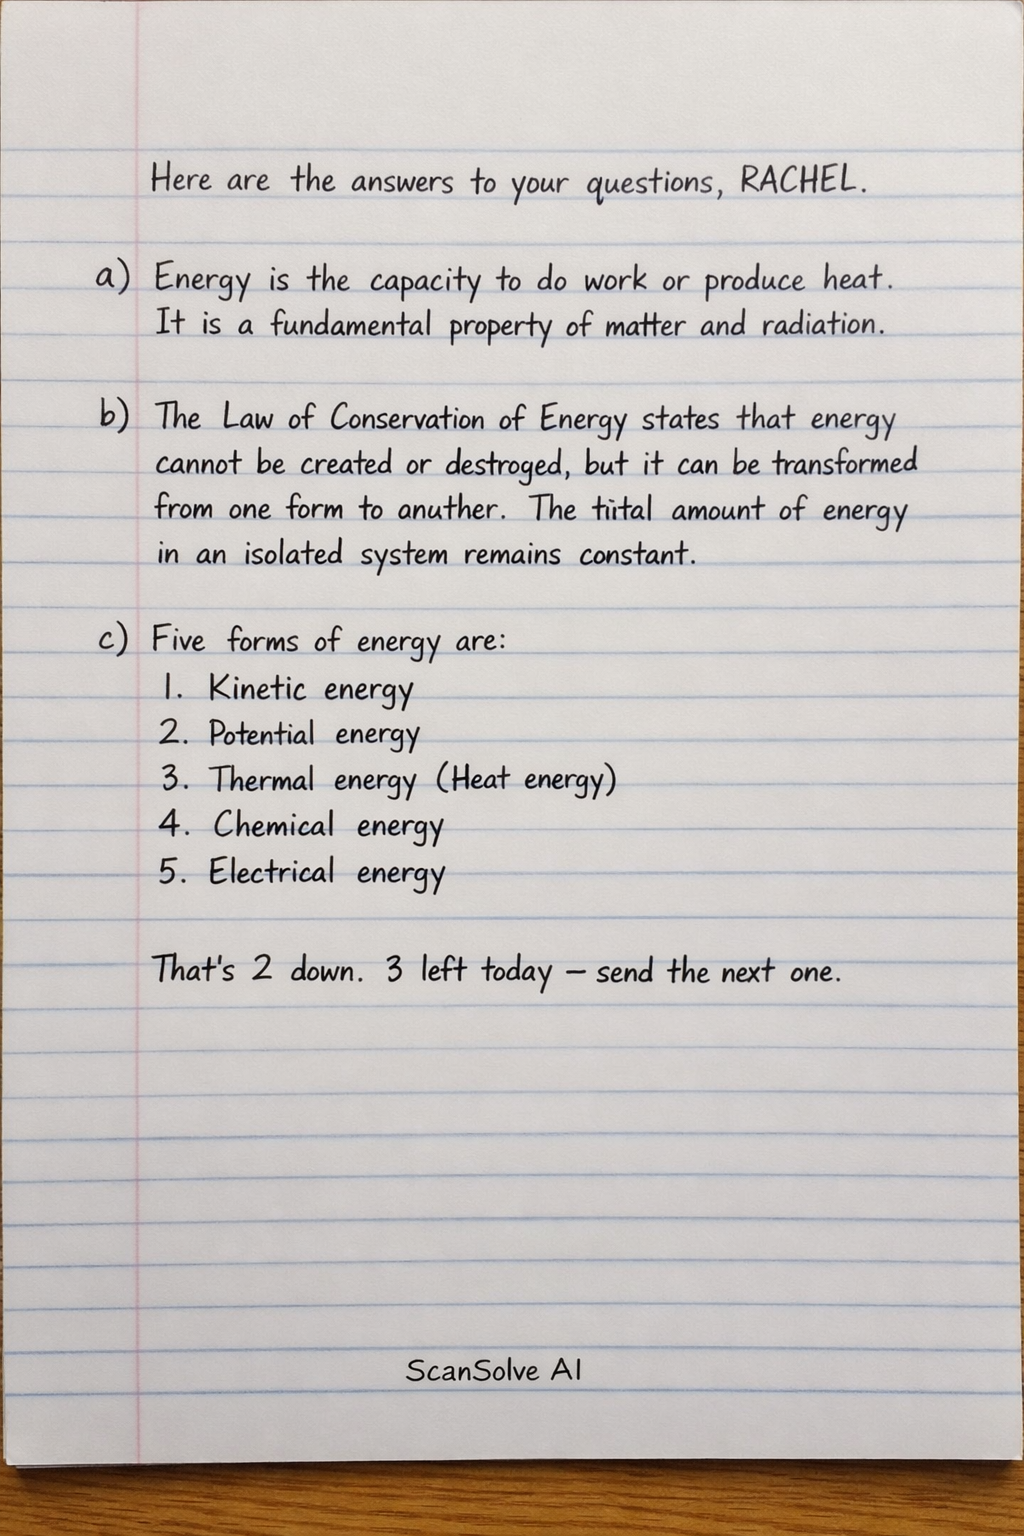 Here are the answers to your questions, RACHEL.
a) Energy is the capacity to do work or produce heat.
It is a fundamental property of matter and radiation.
b) The Law of Conservation of Energy states that energy
cannot be created or destroged, but it can be transformed
from one form to anuther. The tiital amount of energy
in an isolated system remains constant.
c) Five forms of energy are:
1. Kinetic energy
2. Potential energy
3. Thermal energy (Heat energy)
4. Chemical energy
5. Electrical energy
That's 2 down. 3 left today – send the next one.
ScanSolve AI